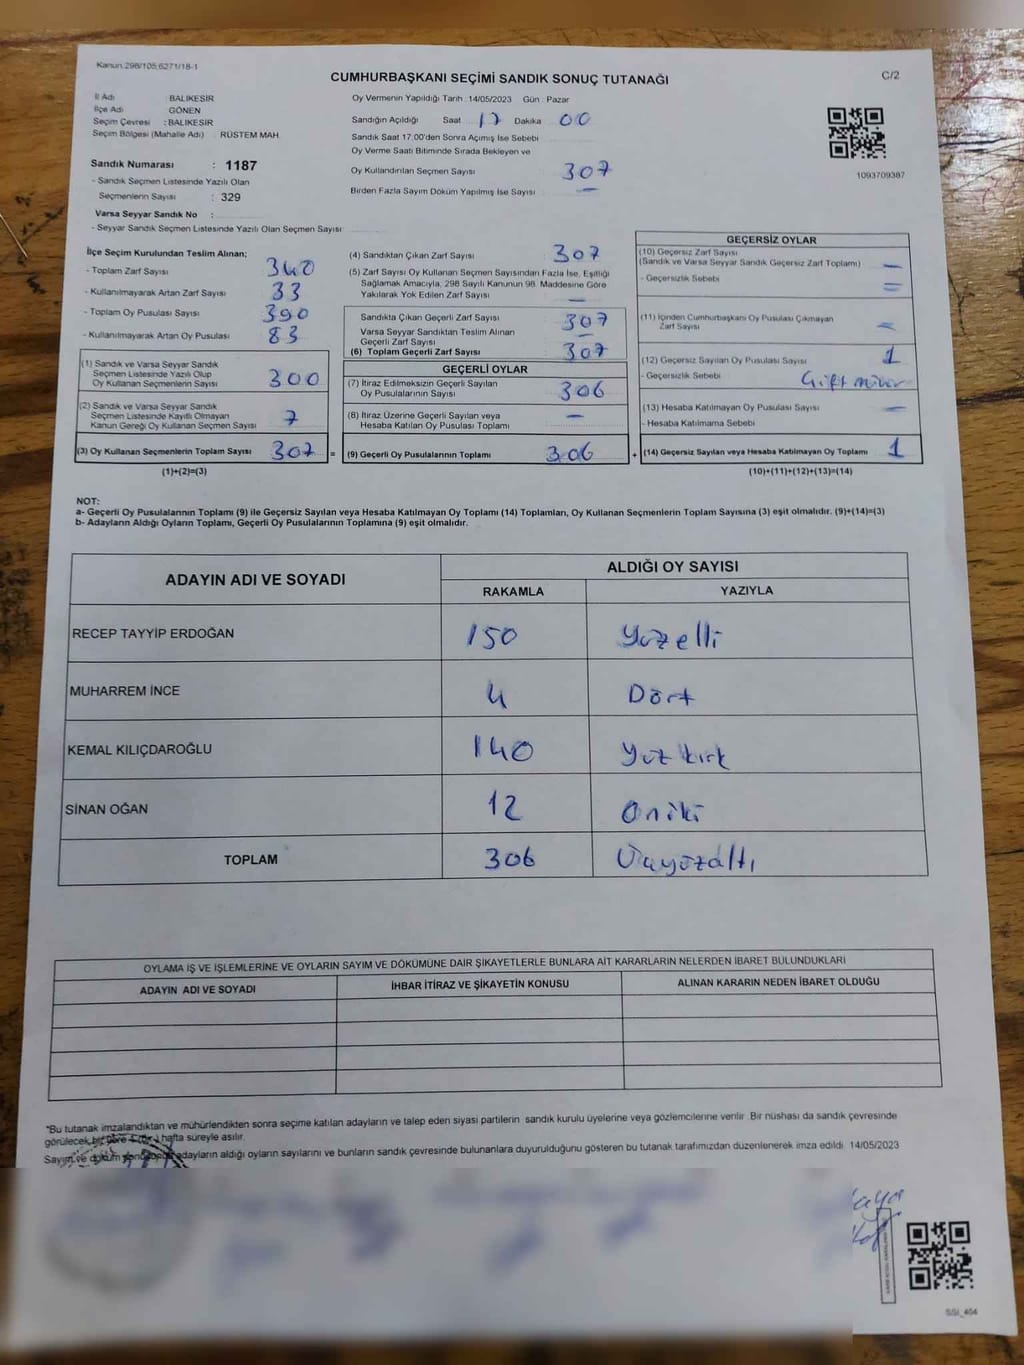 Kanun.298/105;6271/18-1
CUMHURBAŞKANI SEÇİMİ SANDIK SONUÇ TUTANAĞI
C/2
İl Adı : BALIKESİR
İlçe Adı : GÖNEN
Seçim Çevresi : BALIKESİR
Seçim Bölgesi (Mahalle Adı) : RÜSTEM MAH.
Sandık Numarası : 1187
- Sandık Seçmen Listesinde Yazılı Olan
Seçmenlerin Sayısı : 329
Varsa Seyyar Sandık No :
- Seyyar Sandık Seçmen Listesinde Yazılı Olan Seçmen Sayısı:
Oy Vermenin Yapıldığı Tarih : 14/05/2023 Gün : Pazar
Sandığın Açıldığı Saat 17 Dakika 00
Sandık Saat 17.00'den Sonra Açımış İse Sebebi
Oy Verme Saati Bitiminde Sırada Bekleyen ve
Oy Kullandırılan Seçmen Sayısı 307
Birden Fazla Sayım Döküm Yapılmış İse Sayısı —
1093709387
İlçe Seçim Kurulundan Teslim Alınan;
- Toplam Zarf Sayısı 340
- Kullanılmayarak Artan Zarf Sayısı 33
- Toplam Oy Pusulası Sayısı 390
- Kullanılmayarak Artan Oy Pusulası 83
(1) Sandık ve Varsa Seyyar Sandık
Seçmen Listesinde Yazılı Olup
Oy Kullanan Seçmenlerin Sayısı 300
(2) Sandık ve Varsa Seyyar Sandık
Seçmen Listesinde Kayıtlı Olmayan
Kanun Gereği Oy Kullanan Seçmen Sayısı 7
(3) Oy Kullanan Seçmenlerin Toplam Sayısı 307 =
(1)+(2)=(3)
(4) Sandıktan Çıkan Zarf Sayısı 307
(5) Zarf Sayısı Oy Kullanan Seçmen Sayısından Fazla İse, Eşitliği
Sağlamak Amacıyla, 298 Sayılı Kanunun 98. Maddesine Göre
Yakılarak Yok Edilen Zarf Sayısı —
Sandıkta Çıkan Geçerli Zarf Sayısı 307
Varsa Seyyar Sandıktan Teslim Alınan
Geçerli Zarf Sayısı —
(6) Toplam Geçerli Zarf Sayısı 307
GEÇERLİ OYLAR
(7) İtiraz Edilmeksizin Geçerli Sayılan
Oy Pusulalarının Sayısı 306
(8) İtiraz Üzerine Geçerli Sayılan veya
Hesaba Katılan Oy Pusulası Toplamı —
(9) Geçerli Oy Pusulalarının Toplamı 306 +
GEÇERSİZ OYLAR
(10) Geçersiz Zarf Sayısı
(Sandık ve Varsa Seyyar Sandık Geçersiz Zarf Toplamı) —
- Geçersizlik Sebebi —
(11) İçinden Cumhurbaşkanı Oy Pusulası Çıkmayan
Zarf Sayısı —
(12) Geçersiz Sayılan Oy Pusulası Sayısı 1
- Geçersizlik Sebebi Çift mühür
(13) Hesaba Katılmayan Oy Pusulası Sayısı —
- Hesaba Katılmama Sebebi
(14) Geçersiz Sayılan veya Hesaba Katılmayan Oy Toplamı 1
(10)+(11)+(12)+(13)=(14)
NOT:
a- Geçerli Oy Pusulalarının Toplamı (9) ile Geçersiz Sayılan veya Hesaba Katılmayan Oy Toplamı (14) Toplamları, Oy Kullanan Seçmenlerin Toplam Sayısına (3) eşit olmalıdır. (9)+(14)=(3)
b- Adayların Aldığı Oyların Toplamı, Geçerli Oy Pusulalarının Toplamına (9) eşit olmalıdır.
ADAYIN ADI VE SOYADI
ALDIĞI OY SAYISI
RAKAMLA YAZIYLA
RECEP TAYYİP ERDOĞAN 150 Yüzelli
MUHARREM İNCE 4 Dört
KEMAL KILIÇDAROĞLU 140 Yüz kırk
SİNAN OĞAN 12 Oniki
TOPLAM 306 Üçyüzaltı
OYLAMA İŞ VE İŞLEMLERİNE VE OYLARIN SAYIM VE DÖKÜMÜNE DAİR ŞİKAYETLERLE BUNLARA AİT KARARLARIN NELERDEN İBARET BULUNDUKLARI
ADAYIN ADI VE SOYADI İHBAR İTİRAZ VE ŞİKAYETİN KONUSU ALINAN KARARIN NEDEN İBARET OLDUĞU
*Bu tutanak imzalandıktan ve mühürlendikten sonra seçime katılan adayların ve talep eden siyasi partilerin sandık kurulu üyelerine veya gözlemcilerine verilir. Bir nüshası da sandık çevresinde
görülecek bir yere hafta süreyle asılır.
Sayım ve döküm sonucunda adayların aldığı oyların sayılarını ve bunların sandık çevresinde bulunanlara duyurulduğunu gösteren bu tutanak tarafımızdan düzenlenerek imza edildi. 14/05/2023
SSI_404